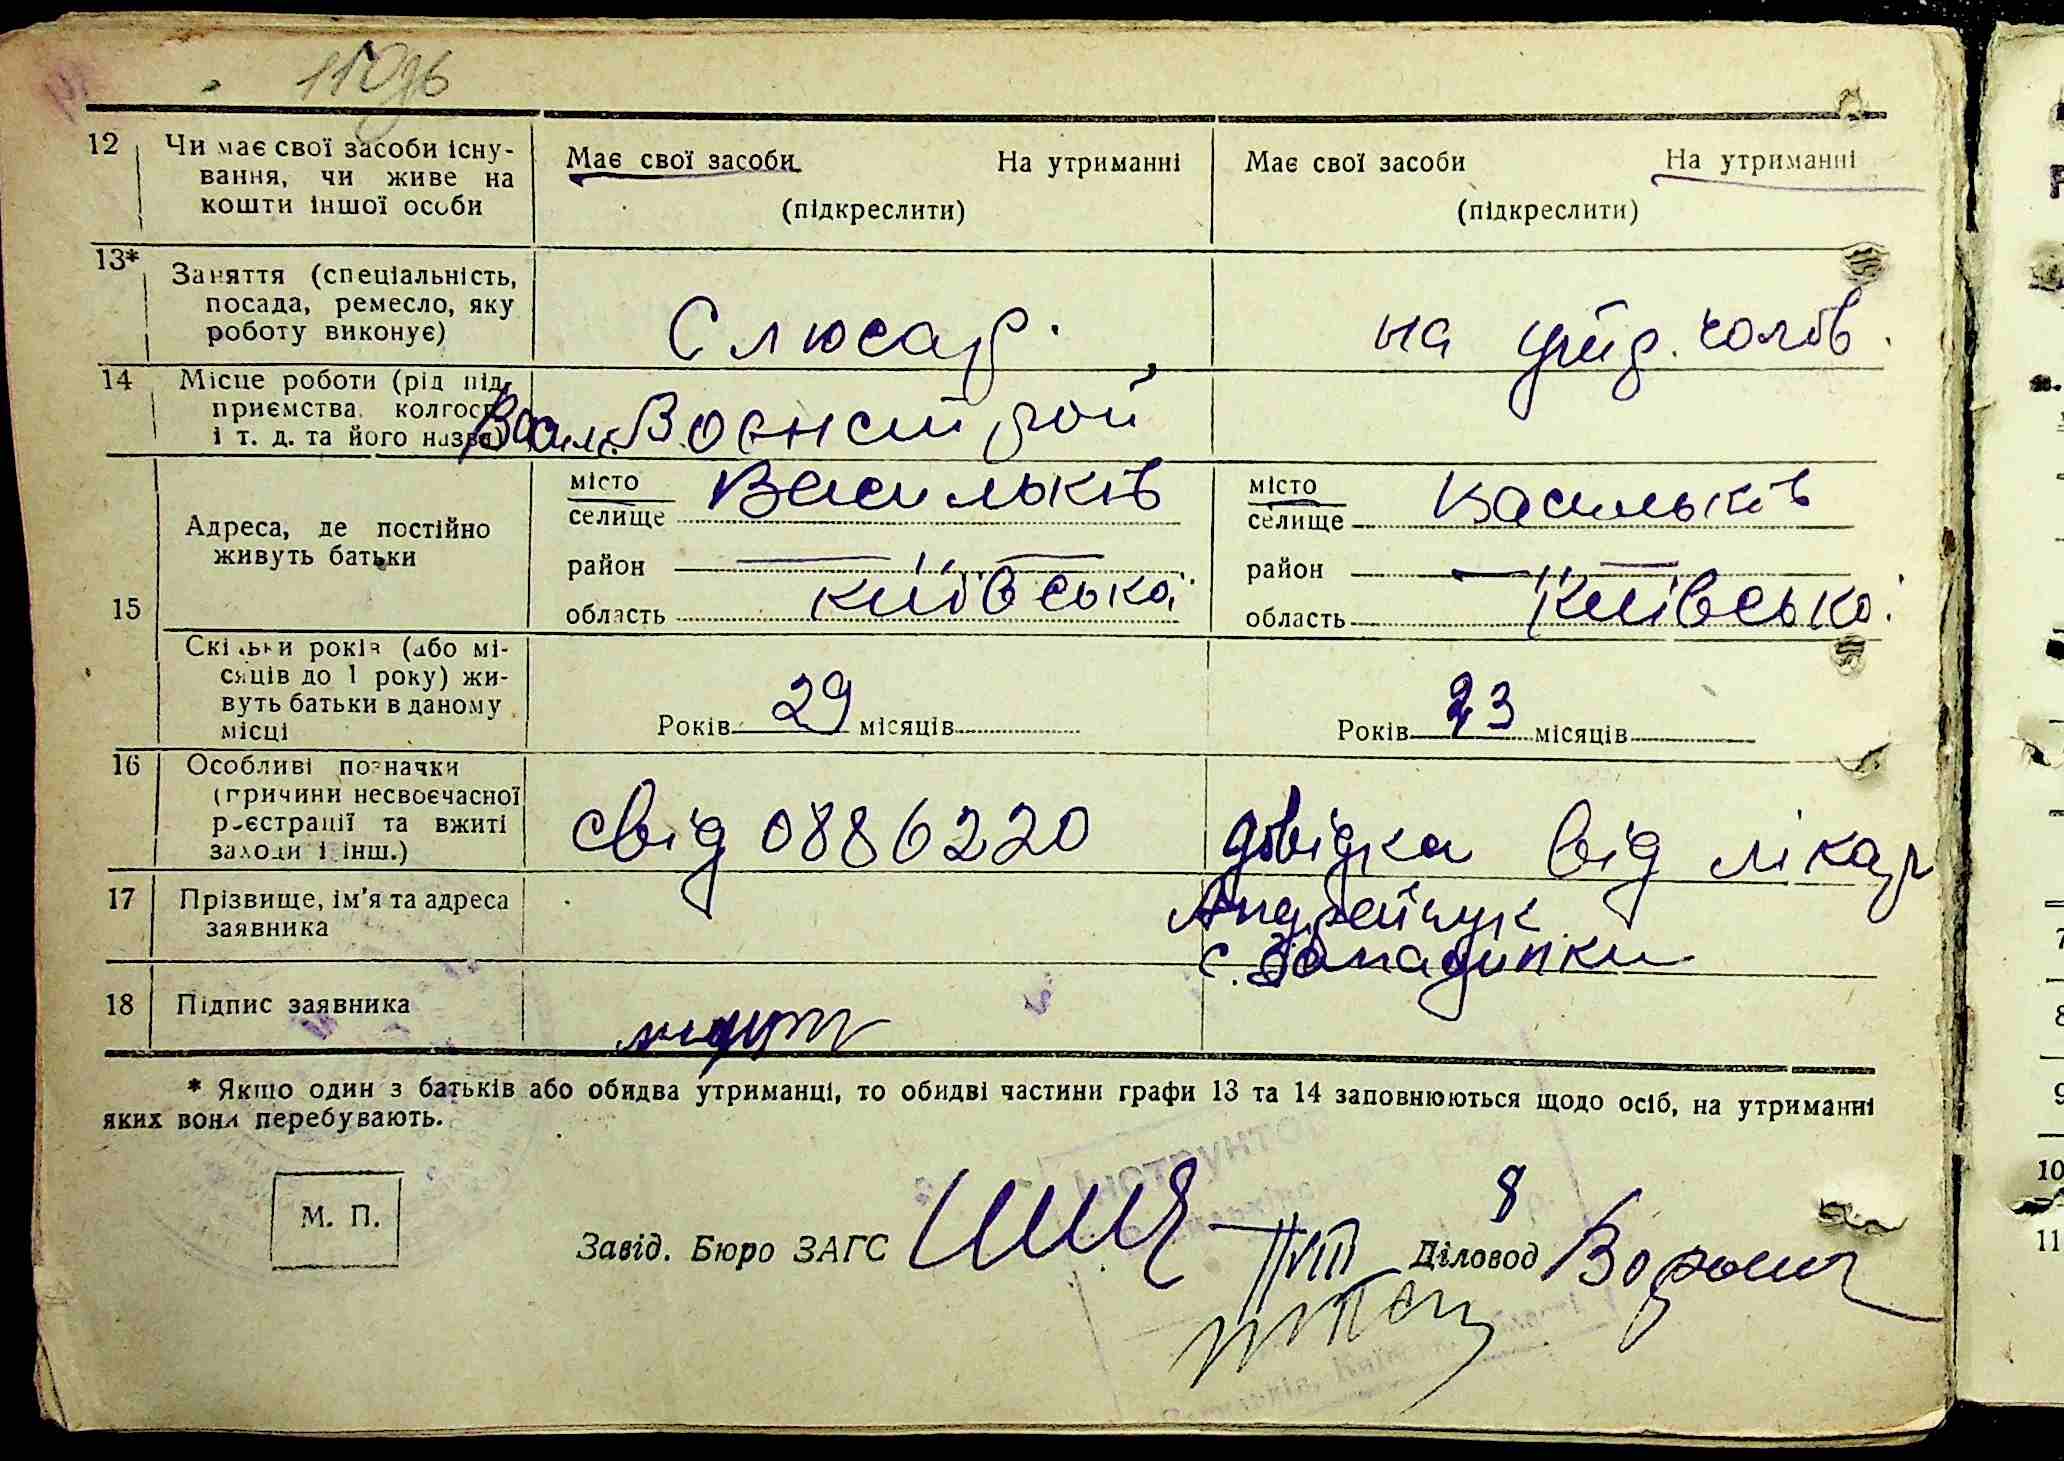 12 Чи має свої засоби існування, чи живе на кошти іншої особи
Має свої засоби На утриманні
(підкреслити)
Має свої засоби На утриманні
(підкреслити)
13* Заняття (спеціальність, посада, ремесло, яку роботу виконує)
Слюсар.
на утр. чолов.
14 Місце роботи (рід підприємства, колгосп і т. д. та його назва)
Васильк. Воєнстрой
15 Адреса, де постійно живуть батьки
місто
селище Васильків
район
область Київської
місто
селище Васильків
район
область Київської
Скільки років (або місяців до 1 року) живуть батьки в даному місці
Років 29 місяців
Років 23 місяців
16 Особливі позначки (причини несвоєчасної реєстрації та вжиті заходи і інш.)
свід 0886220
довідка від лікар
17 Прізвище, ім'я та адреса заявника
с.
18 Підпис заявника
* Якщо один з батьків або обидва утриманці, то обидві частини графи 13 та 14 заповнюються щодо осіб, на утриманні
яких вони перебувають.
М. П.
Завід. Бюро ЗАГС
8
Діловод